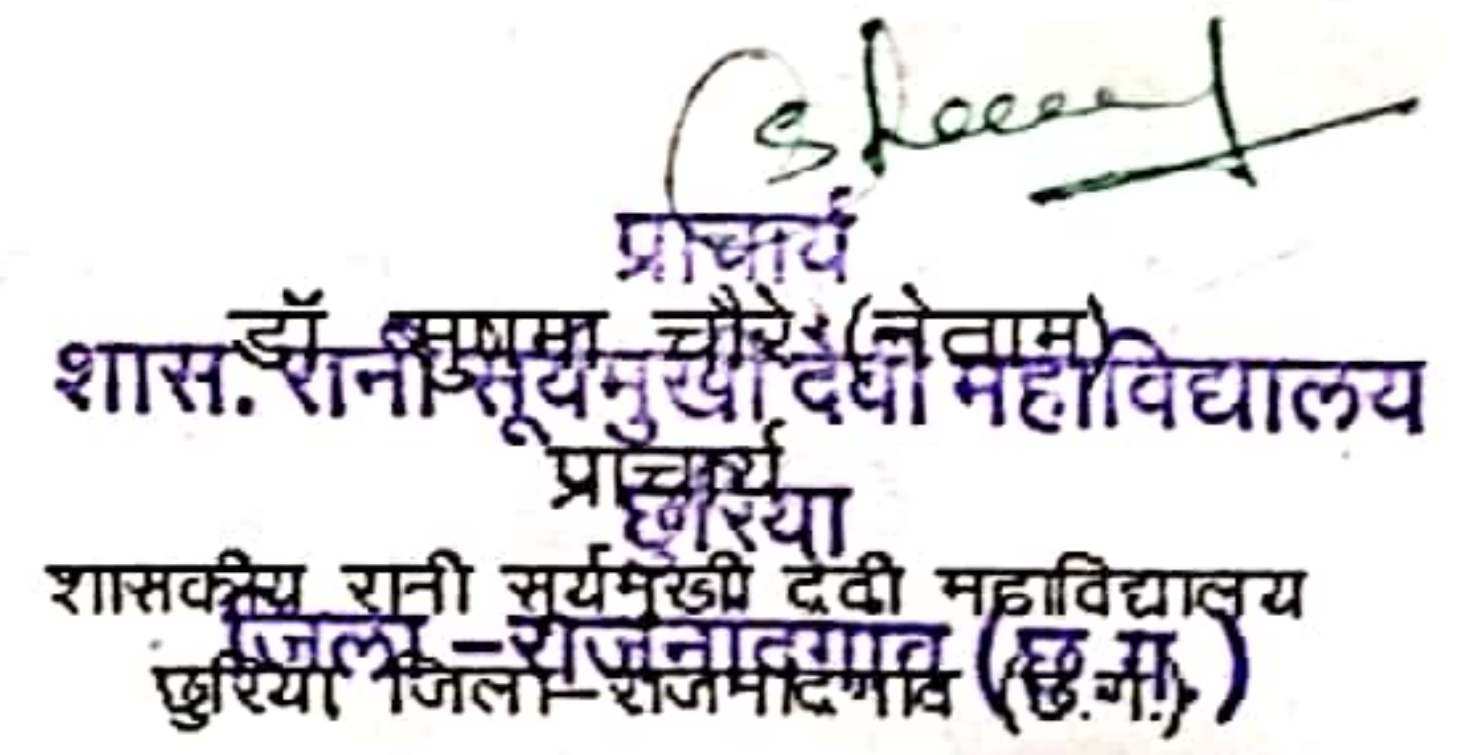 प्राचार्य
डॉ सुषमा चौरे (नेताम)
शास. रानी सूर्यमुखी देवी महाविद्यालय
प्राचार्य
छुरिया
शासकीय रानी सूर्यमुखी देवी महाविद्यालय
जिला -राजनांदगांव (छ.ग.)
छुरिया जिला-राजनांदगांव (छ.ग.)